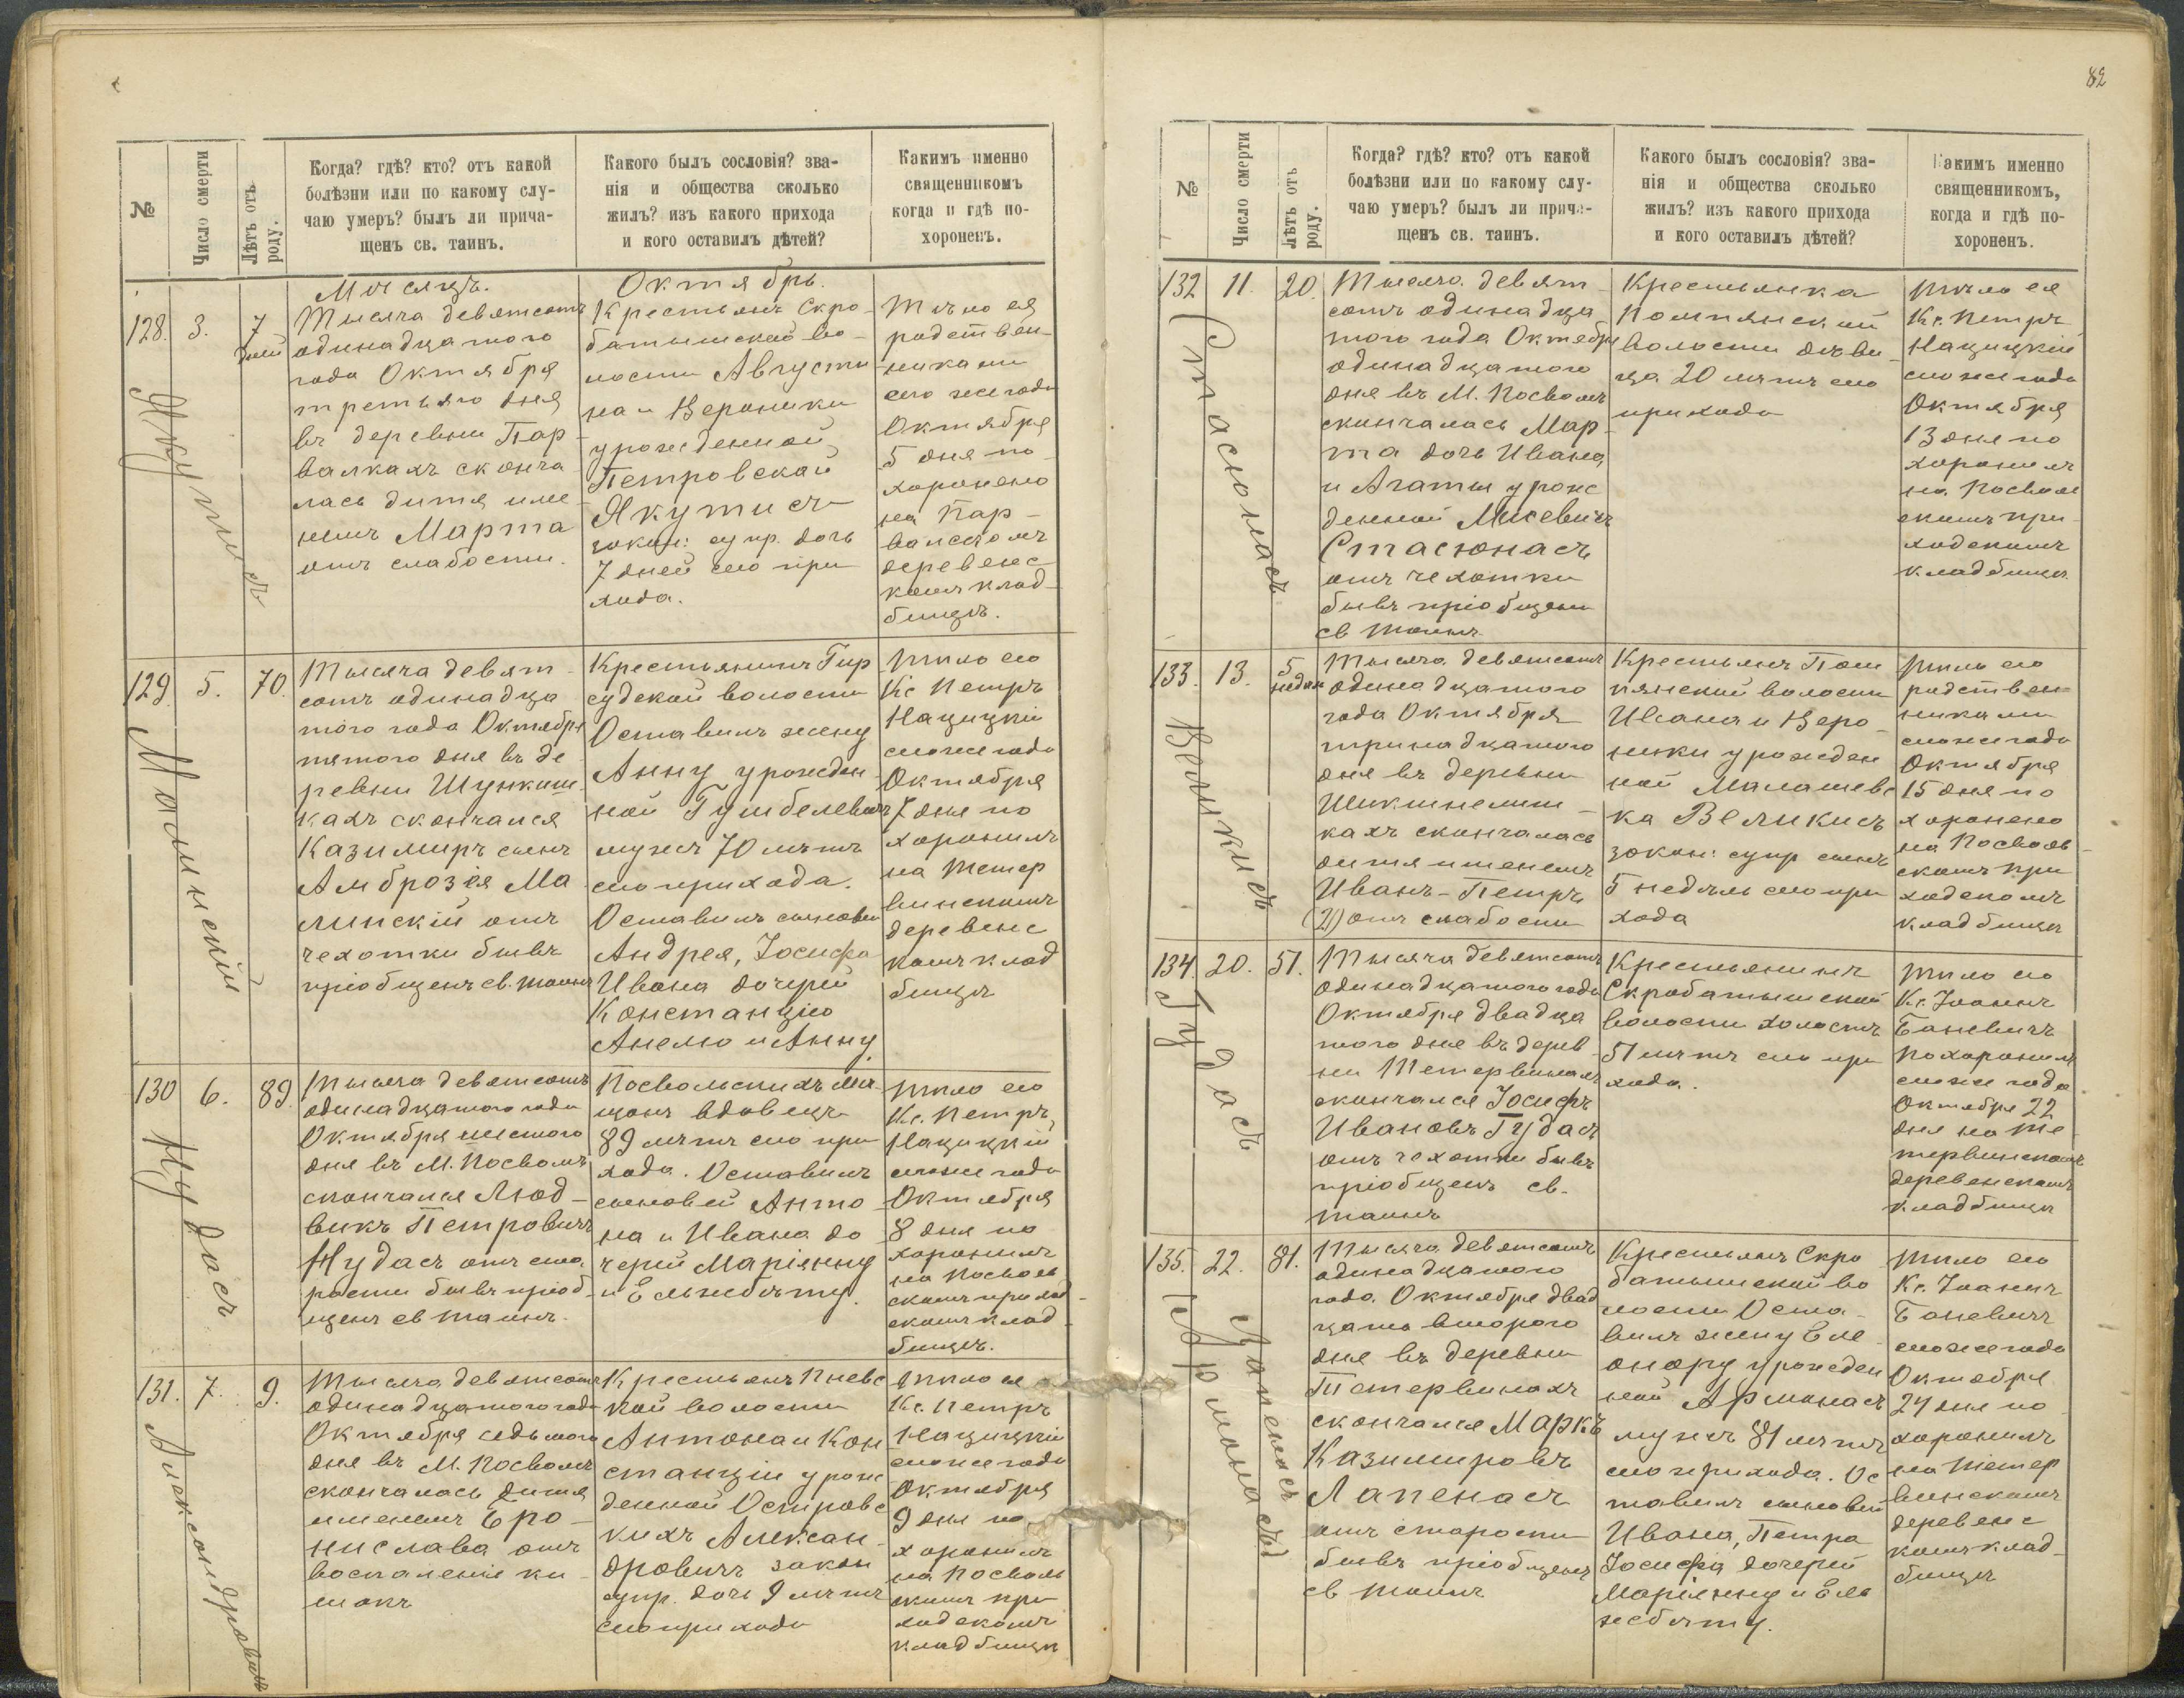 82
№
Число смерти
Лѣтъ отъ роду.
Когда? гдѣ? кто? отъ какой
болѣзни или по какому слу-
чаю умеръ? былъ ли прича-
щенъ св. таинъ.
Какого былъ сословія? зва-
нія и общества сколько
жилъ? изъ какого прихода
и кого оставилъ дѣтей?
Какимъ именно
священникомъ
когда и гдѣ по-
хороненъ.
Мѣсяцъ.
Октябрь.
128.
3.
7
дней
Якутисъ
Тысяча девятсотъ
одинадцатого
года Октября
третьяго дня
въ деревни Пар-
валкахъ сконча
лась дитя име-
немъ Марта
отъ слабости.
Крестьянъ Скро-
батышской во-
лости Августи
на и Вероники
урожденной
Петровской
Якутисъ
закон: супр. дочь
7 дней сего при
хода.
Тѣло ея
родствен-
никами
сего же года
Октября
5 дня по-
хоронено
на Пар-
валскомъ
деревенс-
комъ клад-
бищѣ.
129.
5.
70.
Малинскій
Тысяча девят-
сотъ одинадца
того года Октября
пятого дня въ де
ревни Шункиш-
кахъ скончался
Казимиръ сынъ
Амброзія Ма
линскій отъ
чехотки бывъ
пріобщенъ св. таинъ
Крестьянинъ Гир
судской волости
Оставилъ жену
Анну урожден-
ной Гумбелевичъ
мужъ 70 лѣтъ
сего прихода.
Оставилъ сыновей
Андрея, Іосифа
Ивана дочерей
Константцію
Анелю и Анну
Тѣло его
Кс Петръ
Нацицкій
сего же года
Октября
7 дня по
хоронилъ
на Тетер
винскомъ
деревенс
комъ клад
бищѣ
130
6.
89.
Нудасъ
Тысяча девятсотъ
одинадцатого года
Октября шестого
дня въ М. Посволѣ
скончался Люд-
викъ Петровичъ
Нудасъ отъ ста
рости бывъ пріоб-
щенъ св таинъ.
Посвольскихъ мѣ-
щанъ вдовецъ
89 лѣтъ сего при
хода. Оставилъ
сыновей Анто
на и Ивана до
черей Маріянну
и Ельжбѣту.
Тѣло его
Кс. Петръ
Нацицкій
сего же года
Октября
8 дня по
хоронилъ
на Посволь
скомъ приход-
скомъ клад-
бищѣ.
131.
7.
9.
Александровичъ
Тысяча девятсотъ
одинадцатого года
Октября седьмого
дня въ М. Посволѣ
скончалась дитя
именемъ Бро-
нислава отъ
воспаленіе ки-
шокъ
Крестьянъ Пневс
кой волости
Антона и Кон
станціи урож
денной Островс
кихъ Алексан-
дровичъ закон
супр. дочь 9 лѣтъ
сего прихода
Тѣло ея
Кс. Петръ
Нацицкій
сего же года
Октября
9 дня по
хоронилъ
на Посволь
скомъ при
ходскомъ
кладбищѣ
№
Число смерти
Лѣтъ отъ роду.
Когда? гдѣ? кто? отъ какой
болѣзни или по какому слу-
чаю умеръ? былъ ли приче-
щенъ св. таинъ.
Какого былъ сословія? зва-
нія и общества сколько
жилъ? изъ какого прихода
и кого оставилъ дѣтей?
Какимъ именно
священникомъ,
когда и гдѣ по-
хороненъ.
132
11.
20.
Стасюнасъ
Тысяча девят-
сотъ одинадца
того года Октября
одинадцатого
дня въ М. Посволѣ
скончалась Мар-
та дочь Ивана
и Агаты урож
денной Мисевичъ
Стасюнасъ
отъ чехотки
бывъ пріобщены
св таинъ.
Крестьянка
Помпянской
волости дѣви-
ца 20 лѣтъ сего
прихода
Тѣло ея
Кс. Петръ
Нацицкій
сего же года
Октября
13 дня по
хоронилъ
на Посволь
скомъ при-
ходскомъ
кладбищѣ.
133.
13.
5
недѣл
Великисъ
Тысяча девятсотъ
одинадцатого
года Октября
тринадцатого
дня въ деревни
Шикшнелиш-
кахъ скончалась
дитя именемъ
Иванъ-Петръ
(2) отъ слабости
Крестьянъ Пом
пянской волости
Ивана и Веро-
ники урожден
ной Малашевс
ка Великисъ
закон: супр сынъ
5 недѣль сего при
хода
Тѣло его
родствен-
никами
сего же года
Октября
15 дня по
хоронено
на Посволь-
скомъ при
ходскомъ
кладбищѣ
134.
20.
51.
Гудасъ
Тысяча девятсотъ
одинадцатого года
Октября двадца
того дня въ дерев-
ни Тетервинахъ
скончался Іосифъ
Ивановъ Гудасъ
отъ чехотки бывъ
пріобщенъ св.
таинъ
Крестьянинъ
Скробатышской
волости холостъ
51 лѣтъ сего при
хода.
Тѣло его
Кс. Іоаннъ
Баневичъ
похоронилъ
сего же года
Октября 22
дня на Те
тервинскомъ
деревенскомъ
кладбищѣ
135.
22.
81.
Лапенасъ
Армонасъ
Тысяча девятсотъ
одинадцатого
года Октября двад
цать второго
дня въ деревни
Тетервинахъ
скончался Маркъ
Казимировъ
Лапенасъ
отъ старости
бывъ пріобщенъ
св таинъ
Крестьянъ Скро
батышской во
лости Оста-
вилъ жену Еле-
онору урожден
ной Армонасъ
мужъ 81 лѣтъ
сего прихода. Ос
тавилъ сыновей
Ивана, Петра
Іосифа дочерей
Маріянну и Ель
жбѣту.
Тѣло его
Кс. Іоаннъ
Баневичъ
сего же года
Октября
24 дня по
хоронилъ
на Тетер
винскомъ
деревенс
комъ клад-
бищѣ